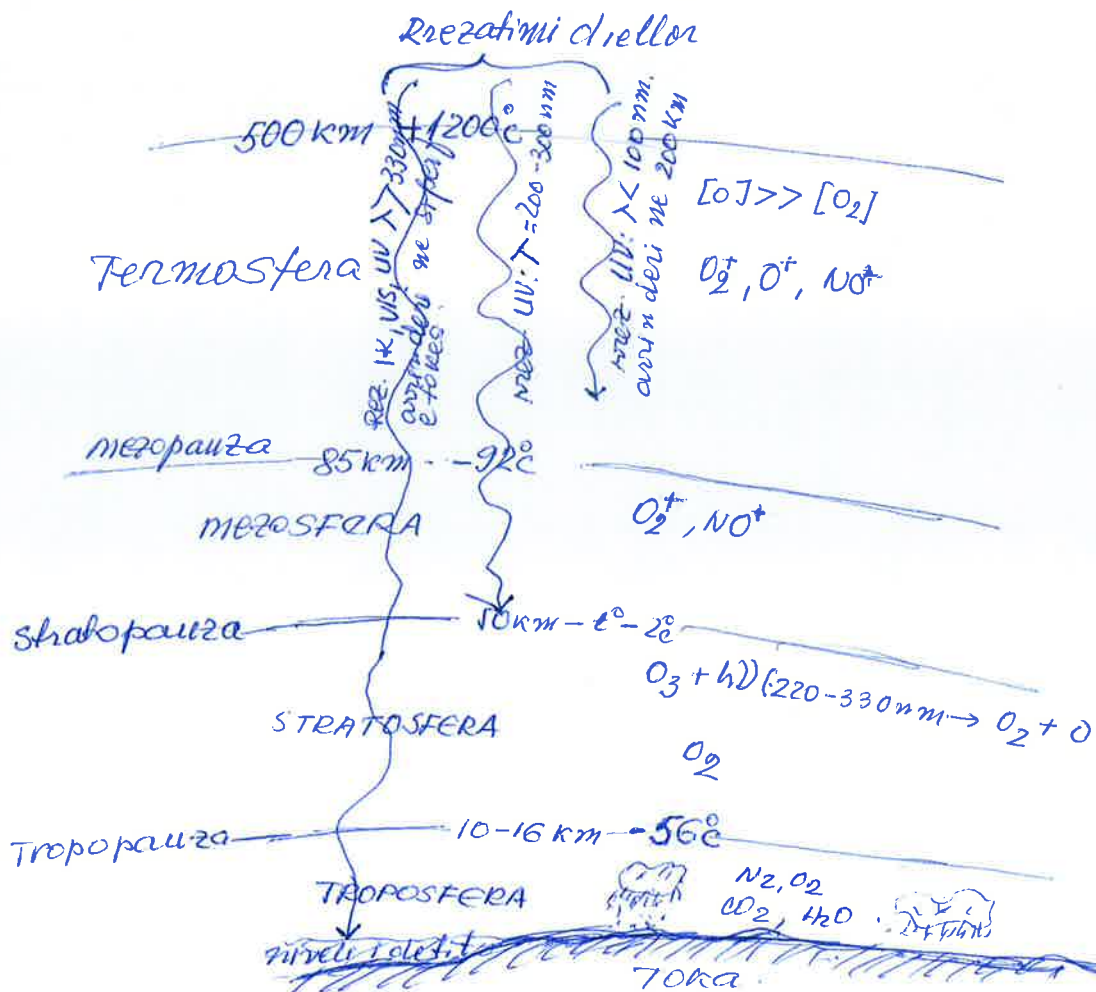 Rrezatimi diellor
500 km +1200°C
rrez. IK, VIS, UV λ>330nm
arrin deri ne siperf
e tokes.
rrez UV: λ=200-300nm
rrez UV: λ<100nm.
arrin deri ne 200km
[O]>>[O₂]
Termosfera
O₂⁺, O⁺, NO⁺
mezopauza
85km - -92°C
MEZOSFERA
O₂⁺, NO⁺
stratopauza
50km - t° -2°C
O₃ + hν (220-330nm → O₂ + O
STRATOSFERA
O₂
Tropopauza
10-16 km - -56°C
TROPOSFERA
N₂, O₂
CO₂, H₂O
niveli i detit
TOKA